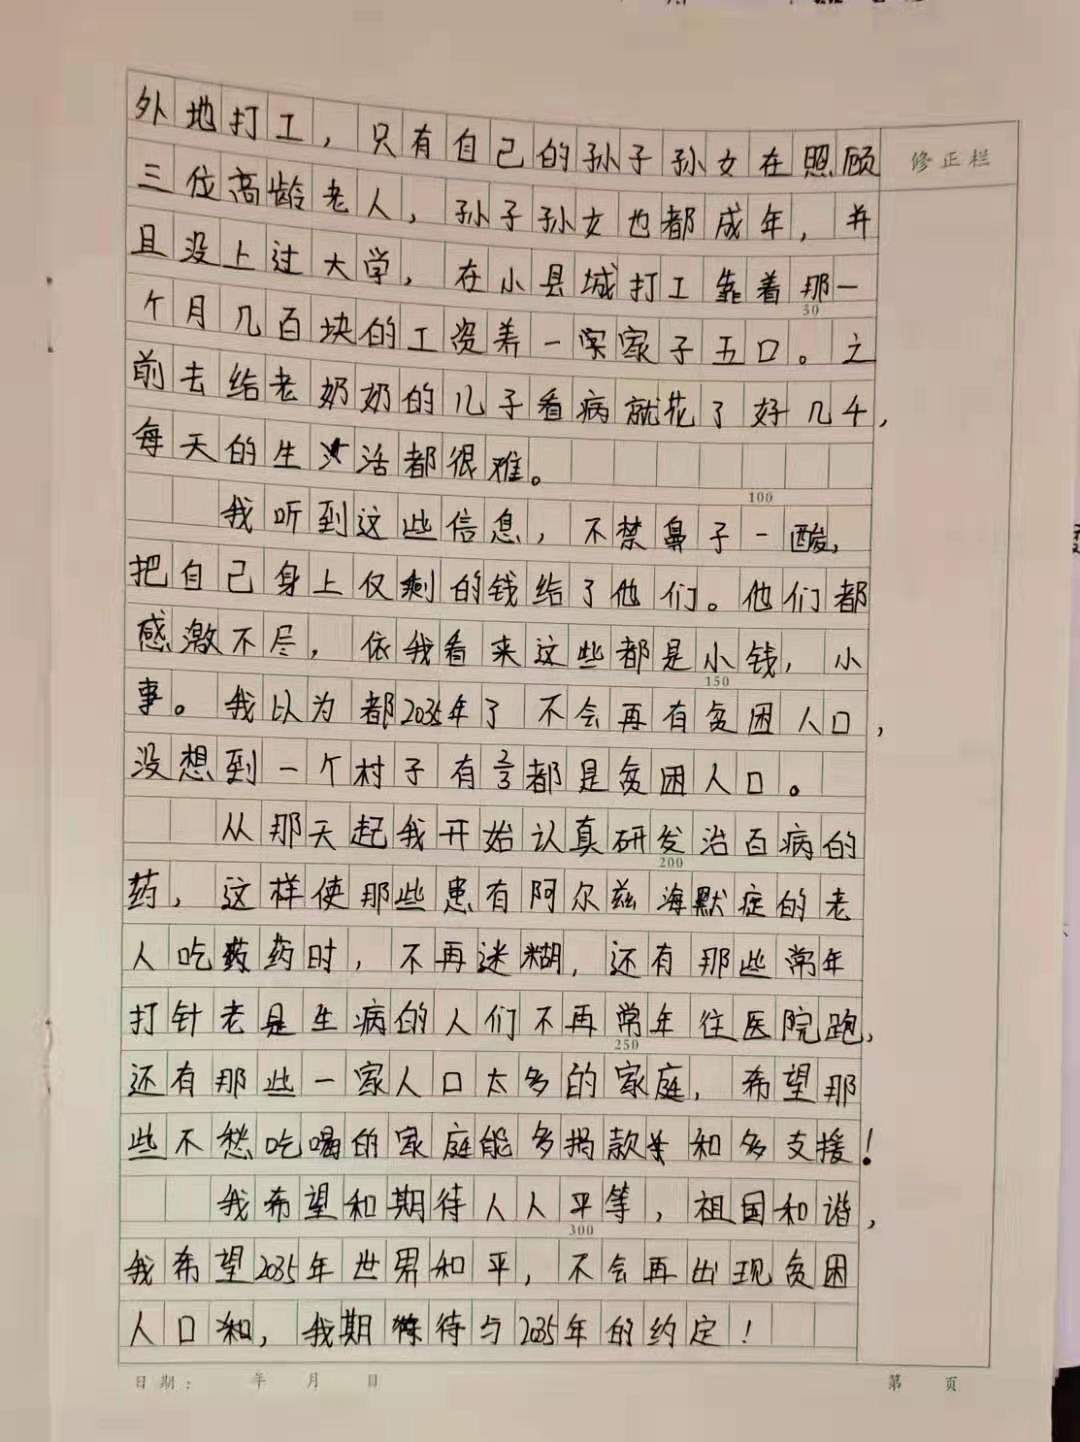 外地打工，只有自己的孙子孙女在照顾
修正栏
三位高龄老人，孙子孙女也都成年，并
且没上过大学，在小县城打工靠着那一
50
个月几百块的工资养一家子五口。之
前去给老奶奶的儿子看病就花了好几千，
每天的生活都很难。
100
我听到这些信息，不禁鼻子一酸，
把自己身上仅剩的钱给了他们。他们都
感激不尽，依我看来这些都是小钱，小
150
事。我以为都2035年了不会再有贫困人口，
没想到一个村子有都是贫困人口。
从那天起我开始认真研发治百病的
200
药，这样使那些患有阿尔兹海默症的老
人吃药时，不再迷糊，还有那些常年
打针老是生病的人们不再常年往医院跑，
250
还有那些一家人口太多的家庭，希望那
些不愁吃喝的家庭能多捐款和多支援！
我希望和期待人人平等，祖国和谐，
300
我希望2035年世界和平，不会再出现贫困
人口，我期待与2035年的约定！
日期： 年 月 日
第 页